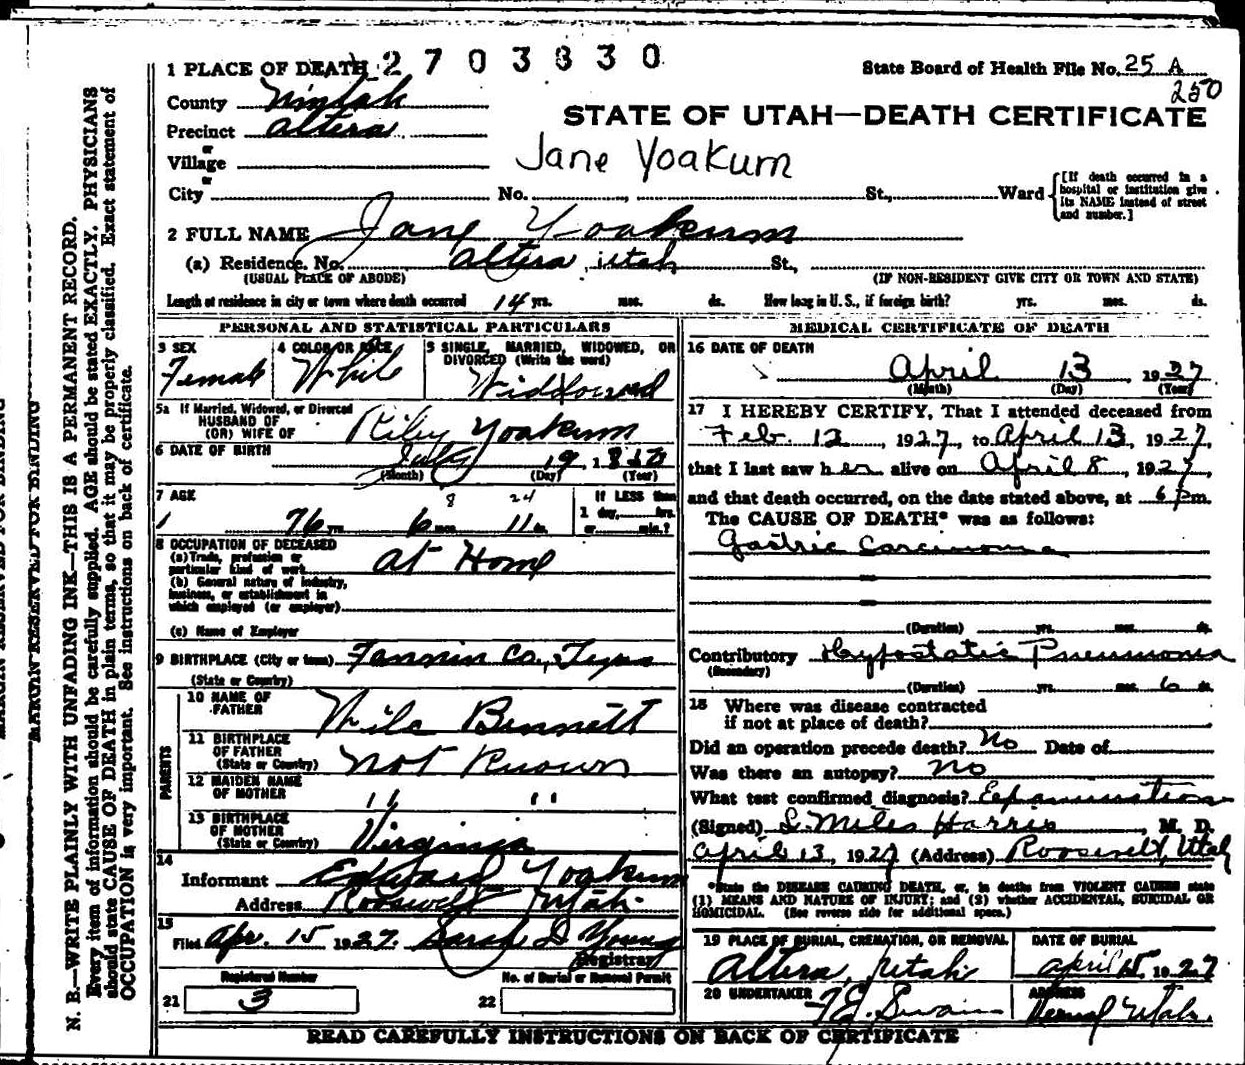 2703830
1 PLACE OF DEATH
State Board of Health File No. 25 A
250
County Uintah
STATE OF UTAH—DEATH CERTIFICATE
Precinct Altera
or
Village
Jane Yoakum
or
City No. St., Ward
[If death occurred in a hospital or institution give its NAME instead of street and number.]
2 FULL NAME Jane Yoakum
(a) Residence. No. Altera, Utah St.,
(USUAL PLACE OF ABODE) (IF NON-RESIDENT GIVE CITY OR TOWN AND STATE)
Length of residence in city or town where death occurred 14 yrs. mos. ds. How long in U. S., if foreign birth? yrs. mos. ds.
PERSONAL AND STATISTICAL PARTICULARS
3 SEX
Female
4 COLOR OR RACE
White
5 SINGLE, MARRIED, WIDOWED, OR DIVORCED (Write the word)
Widdowed
5a If Married, Widowed, or Divorced
HUSBAND OF
(OR) WIFE OF Riley Yoakum
6 DATE OF BIRTH July 19 1850
(Month) (Day) (Year)
7 AGE
8 24
76 yrs. 6 mos. 11 ds.
If LESS than
1 day, hrs.
or min.?
8 OCCUPATION OF DECEASED
(a) Trade, profession or
particular kind of work At Home
(b) General nature of industry,
business, or establishment in
which employed (or employer)
(c) Name of Employer
9 BIRTHPLACE (City or town) Fannin Co., Texas
(State or Country)
PARENTS
10 NAME OF
FATHER Wile Bennett
11 BIRTHPLACE
OF FATHER
(State or Country) Not Known
12 MAIDEN NAME
OF MOTHER " "
13 BIRTHPLACE
OF MOTHER
(State or Country) Virginia
14
Informant Edward Yoakum
Address Roosevelt Utah
15
Filed Apr. 15 1927. Sarah D Young
Registrar
Registered Number No. of Burial or Removal Permit
21 3 22
MEDICAL CERTIFICATE OF DEATH
16 DATE OF DEATH
April 13 1927
(Month) (Day) (Year)
17 I HEREBY CERTIFY, That I attended deceased from
Feb. 12, 1927, to April 13, 1927,
that I last saw her alive on April 8, 1927,
and that death occurred, on the date stated above, at 6 pm.
The CAUSE OF DEATH* was as follows:
Gastric Carcinoma
(Duration) yrs. mos. ds.
Contributory Hypostatic Pneumonia
(Secondary)
(Duration) yrs. mos. 6 ds.
18 Where was disease contracted
if not at place of death?
Did an operation precede death? No Date of
Was there an autopsy? No
What test confirmed diagnosis? Examination
(Signed) L. Miles Harris, M. D.
April 13, 1927 (Address) Roosevelt, Utah
*State the DISEASE CAUSING DEATH, or, in deaths from VIOLENT CAUSES state
(1) MEANS AND NATURE OF INJURY; and (2) whether ACCIDENTAL, SUICIDAL OR
HOMICIDAL. (See reverse side for additional space.)
19 PLACE OF BURIAL, CREMATION, OR REMOVAL
Altera, Utah
DATE OF BURIAL
April 15, 1927
20 UNDERTAKER
F. E. Swain
ADDRESS
Vernal Utah.
READ CAREFULLY INSTRUCTIONS ON BACK OF CERTIFICATE
MARGIN RESERVED FOR BINDING
N. B.—WRITE PLAINLY WITH UNFADING INK—THIS IS A PERMANENT RECORD.
Every item of information should be carefully supplied. AGE should be stated EXACTLY. PHYSICIANS
should state CAUSE OF DEATH in plain terms, so that it may be properly classified. Exact statement of
OCCUPATION is very important. See instructions on back of certificate.